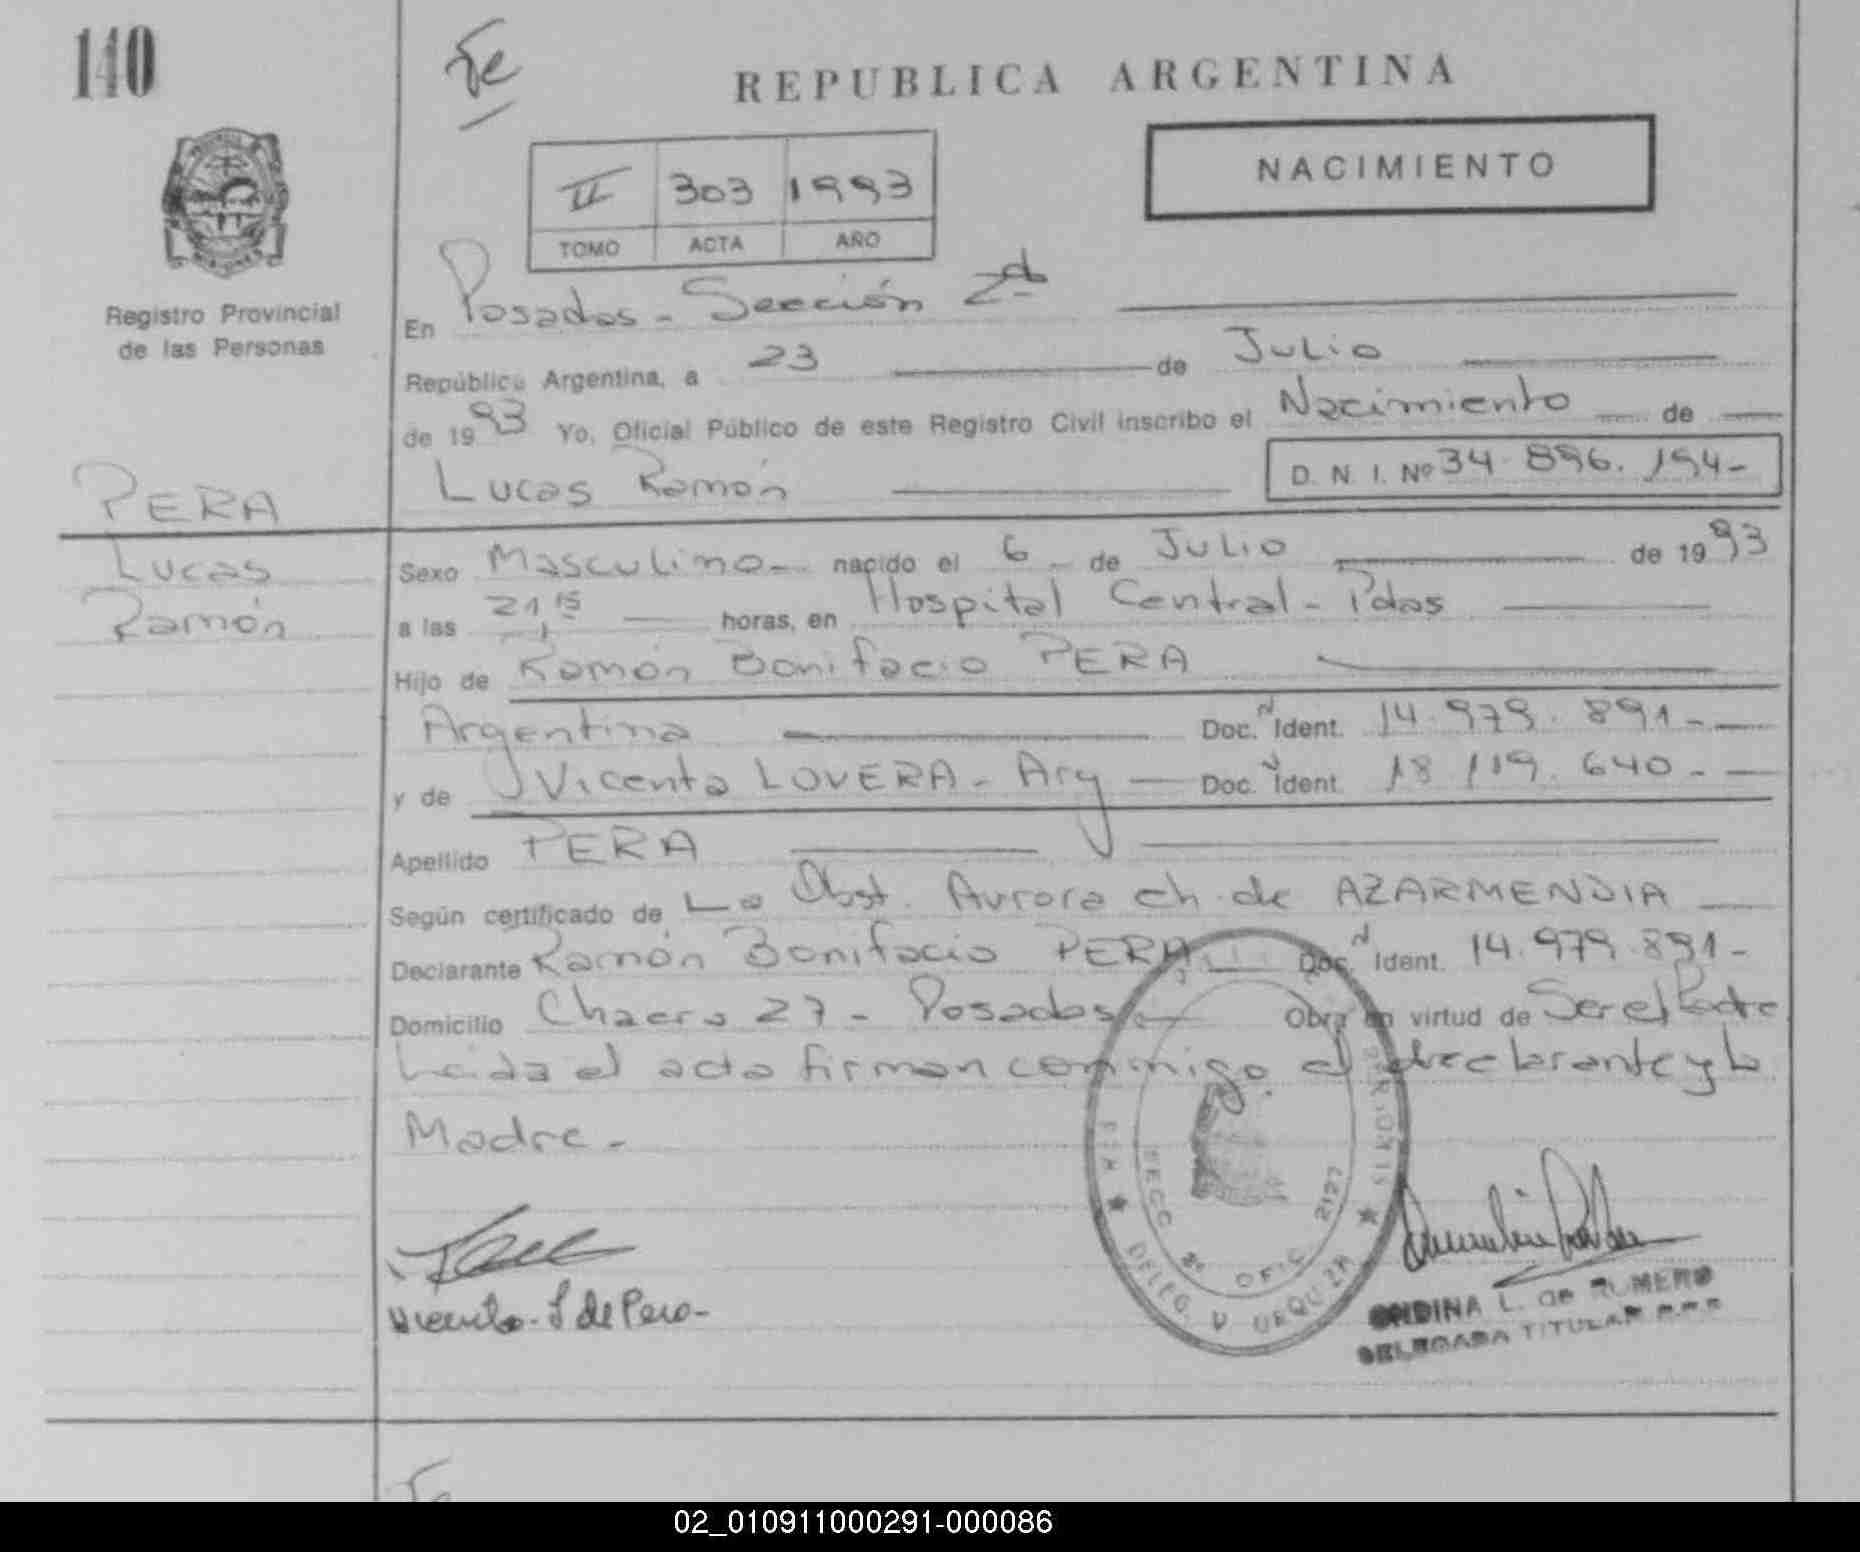 140
Fe
REPUBLICA ARGENTINA
II 303 1993
TOMO ACTA AÑO
NACIMIENTO
Registro Provincial
de las Personas
En Posadas - Sección 2da
República Argentina, a 23 de Julio
de 1993 Yo, Oficial Público de este Registro Civil inscribo el Nacimiento de
Lucas Ramón D. N. I. Nº 34.896.194-
PERA
Lucas
Ramón
Sexo Masculino - nacido el 6 de Julio de 1993
a las 21,15 horas, en Hospital Central - Pdas
Hijo de Ramón Bonifacio PERA
Argentina Doc. Ident. 14.979.891-
y de Vicenta LOVERA - Arg Doc. Ident. 18.119.640-
Apellido PERA
Según certificado de La Obst. Aurora Ch. de AZARMENDIA
Declarante Ramón Bonifacio PERA Doc. Ident. 14.979.891-
Domicilio Chacra 27 - Posadas Obra en virtud de Ser el Padre
Leida el acta firman conmigo el declarante y la
Madre -
MISIONES
SECC 2º OFIC 2127
DELEG. V URQUIZA
Vicenta L de Pera -
ONDINA L. de ROMERO
DELEGADA TITULAR R.P.P.
02_010911000291-000086